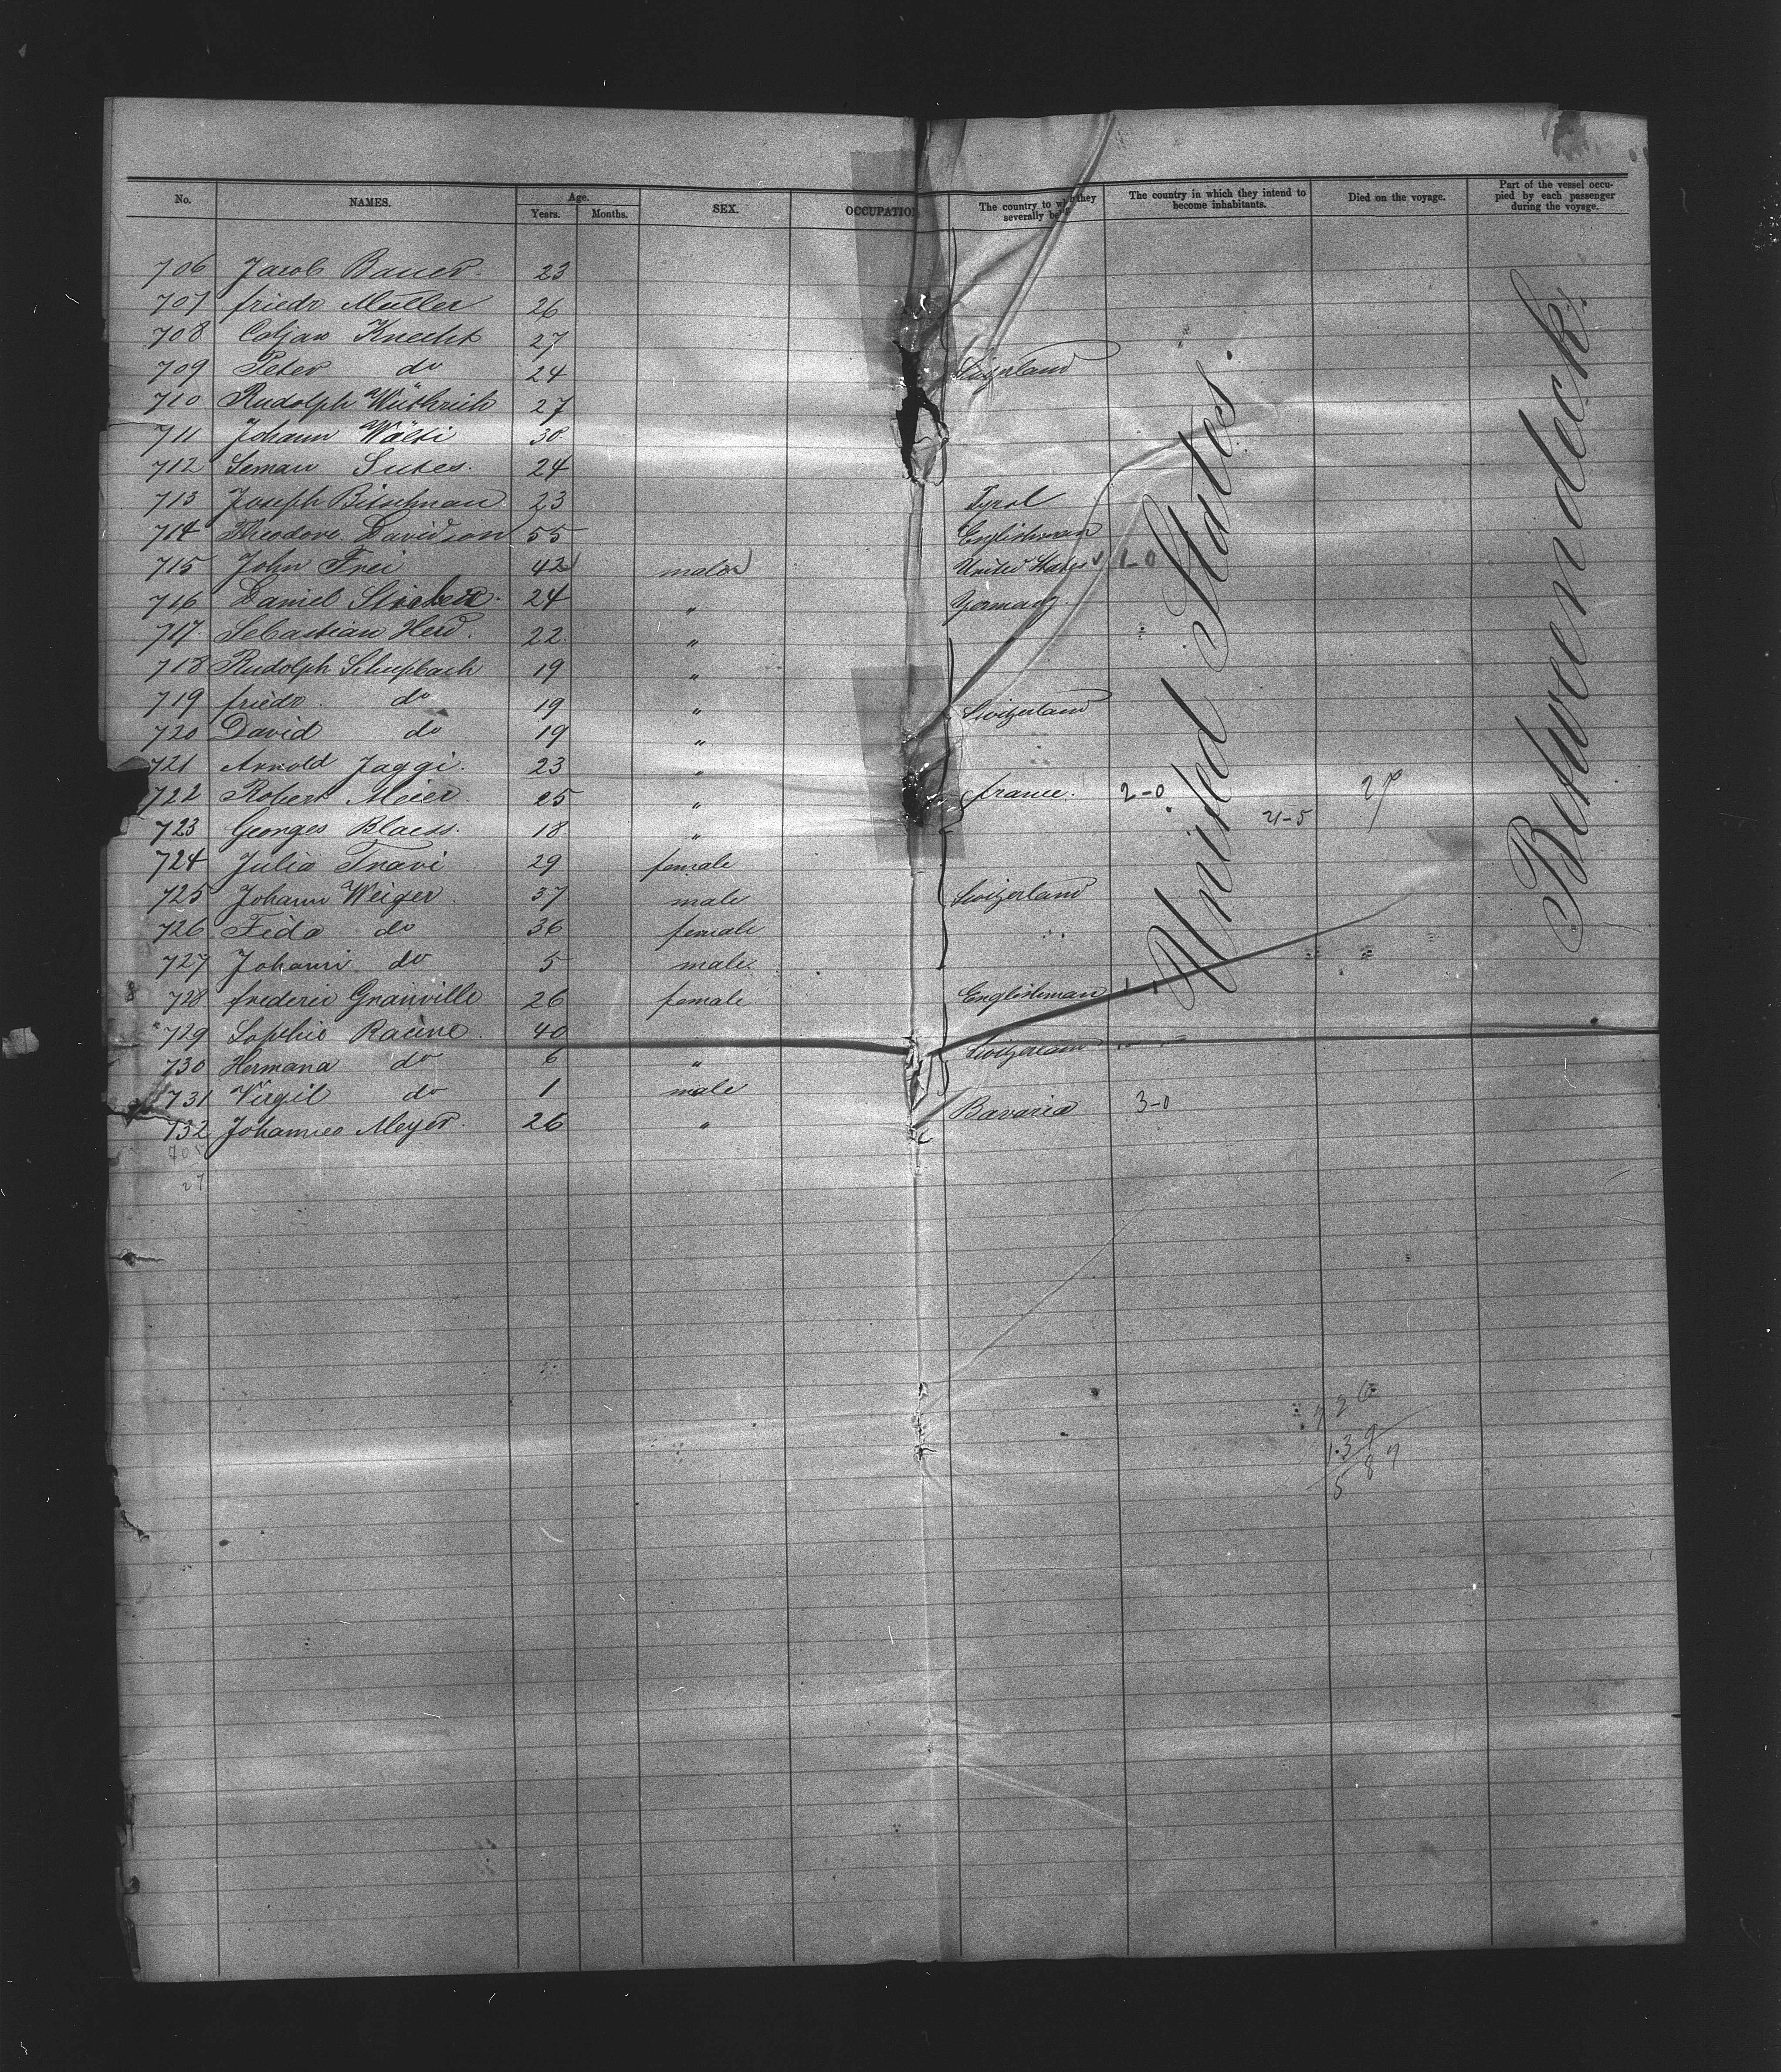 No. NAMES. Age. Years. Months. SEX. OCCUPATION The country to they severally The country in which they intend to become inhabitants. Died on the voyage. Part of the vessel occupied by each passenger during the voyage.
706 Jacob Bauer. 23
707 friedr Muller 26
708 Knecht 27
709 Peter do 24
710 Rudolph Wüthrich 27
711 Johann Wälti 30
712 Seman Suter. 24
713 Joseph Bitschman 23 Tyrol
714 Theodore Davidson 55 Englishman
715 John Frei 42 male United States 1-0
716 Daniel 24 " Germany.
717. Sebastian Herd. 22 "
718 Rudolph Schupbach 19 "
719 friedr. do 19 " Switzerland
720 David do 19 "
721 Arnold Jaggi. 23 "
722 Robert Meier 25 " france. 2-0
723 Georges Blaess. 18 " 4-5
724 Julia Travi 29 female
725 Johann Weiger 37 male Switzerland
726 Fida do 36 female
727 Johann do 5 male
728 frederic Granville 26 female Englishman
729 Sophie Racine. 40 Switzerland
730 Hermana do 6 "
731 Virgil do 1 male Bavaria 3-0
732 Johannes Meyer. 26 "
705
27
United States.
Between deck.
139
587